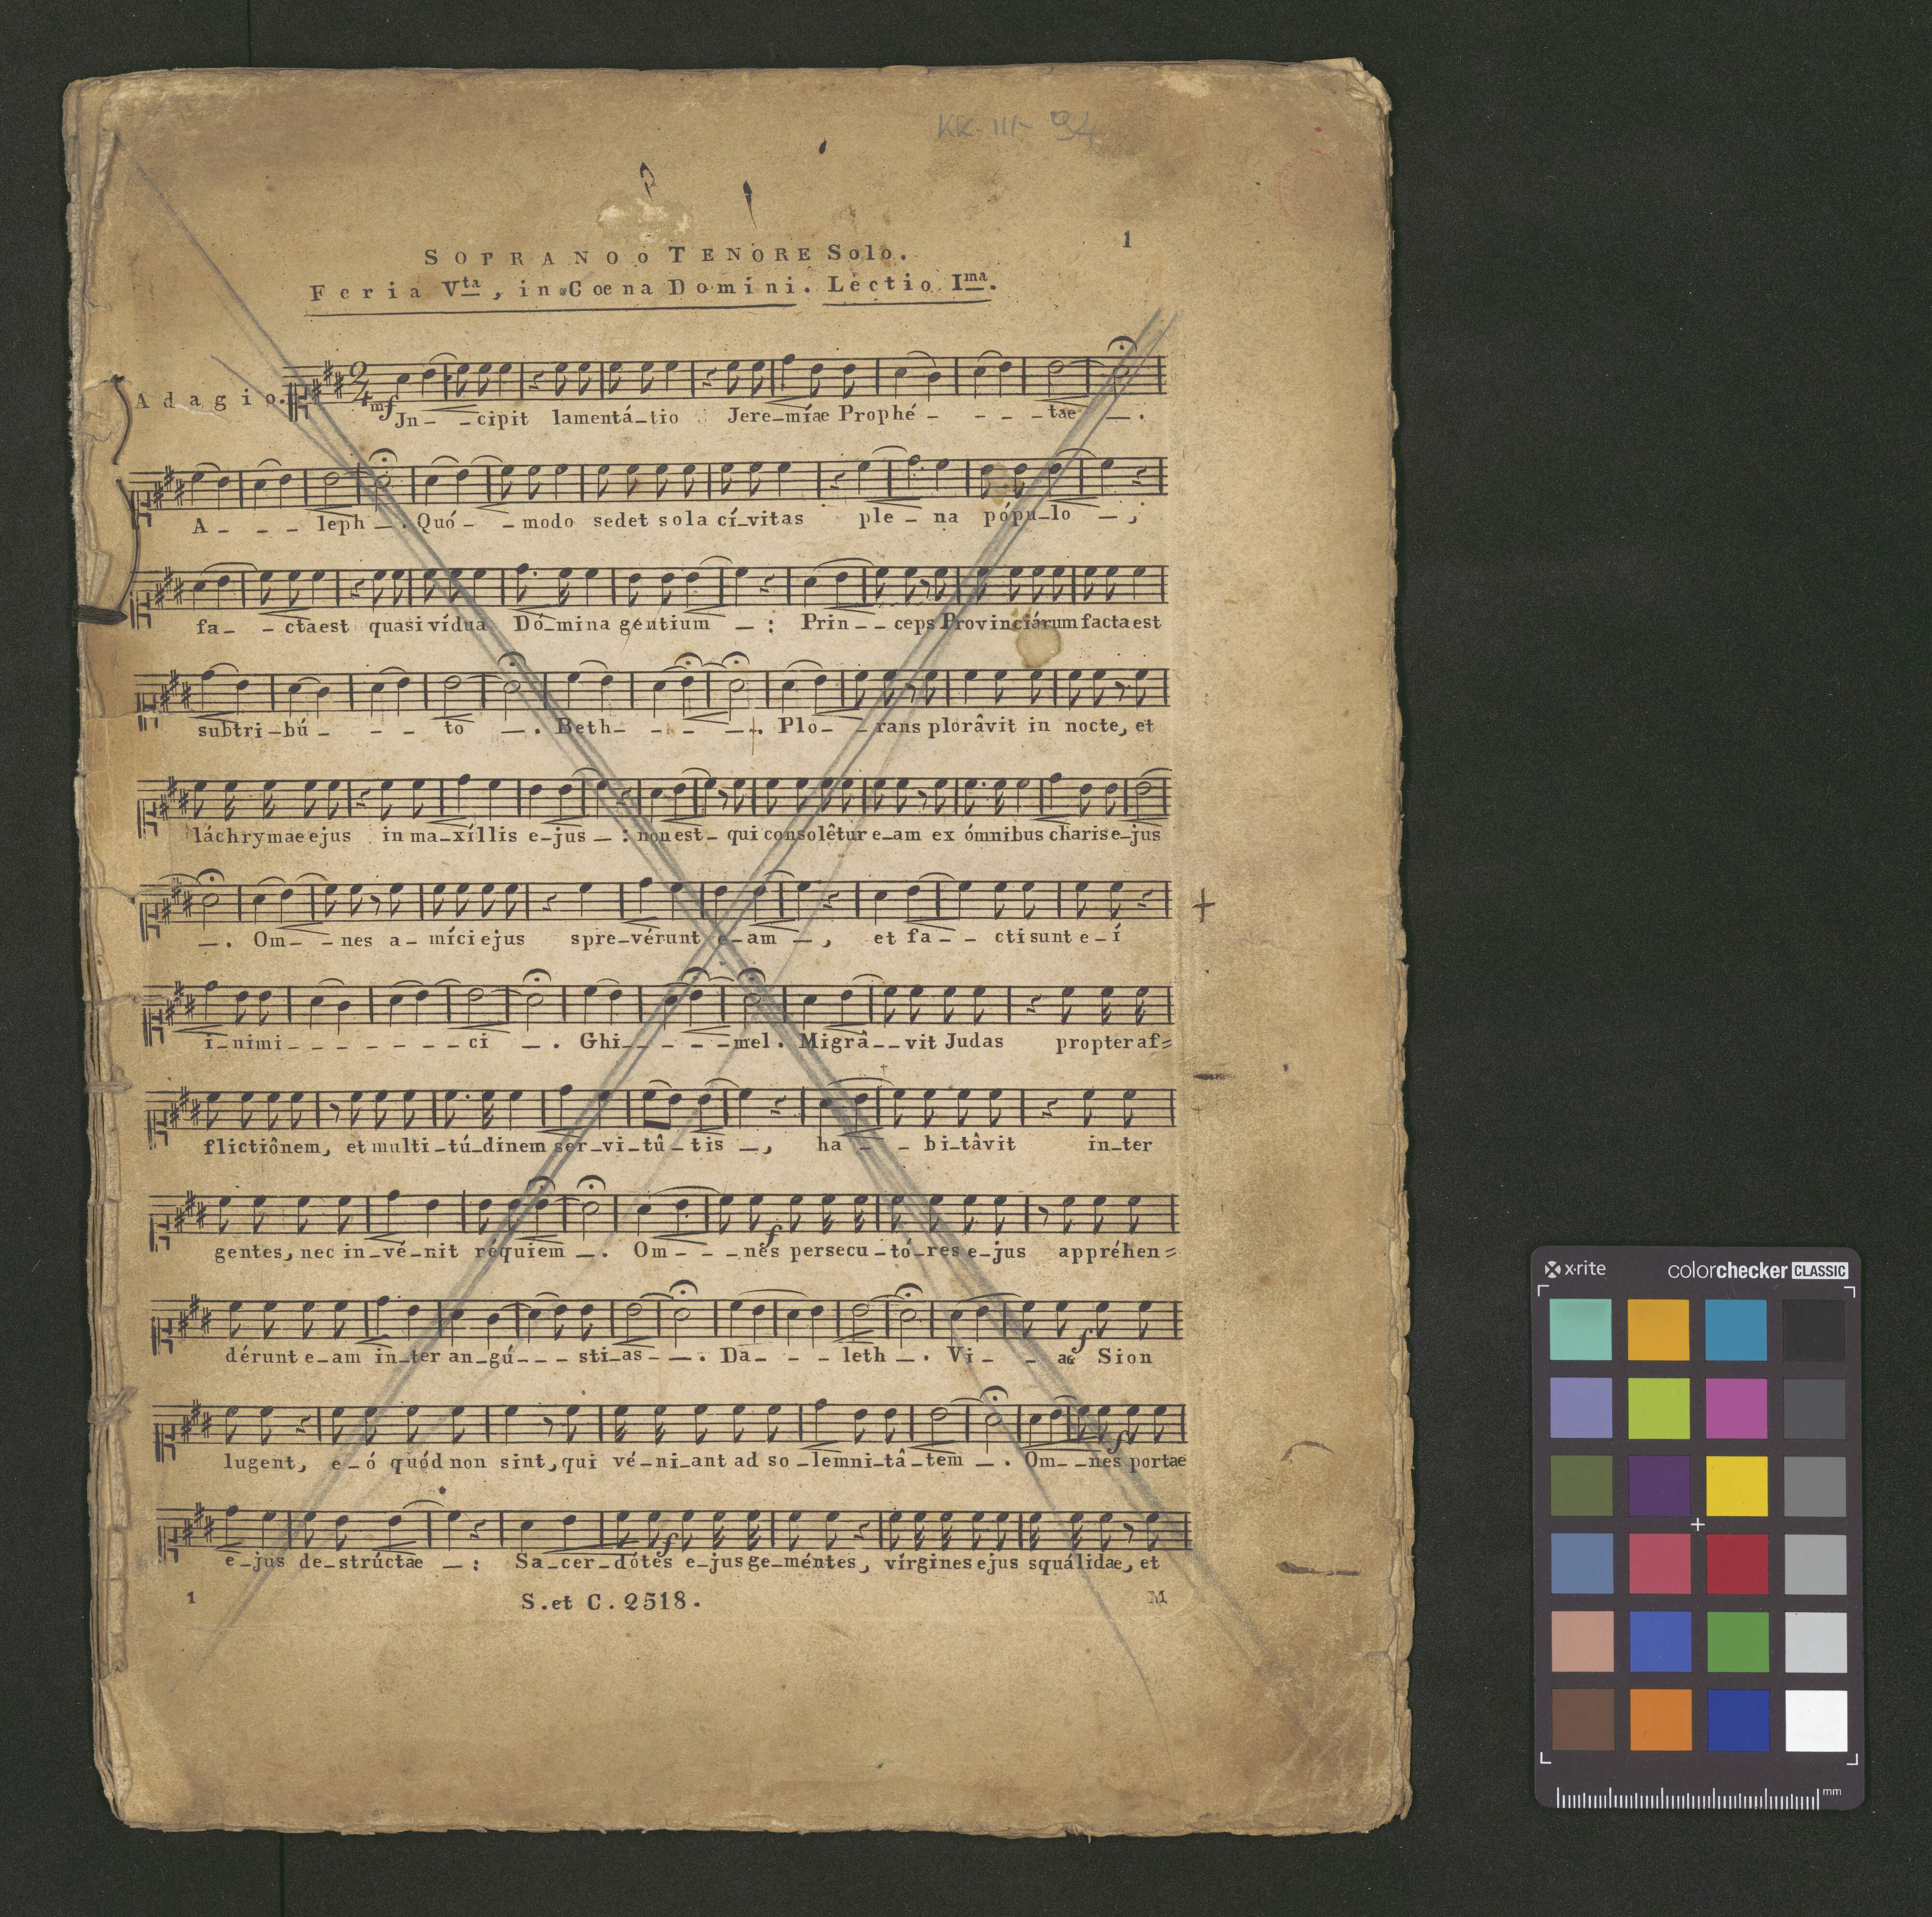 KK. III- 94
1
SOPRANO o TENORE Solo.
Feria Vta, in Coena Domini. Lectio Ima.
Adagio.
mf
Jn- -cipit lamentá-tio Jere-míae Prophé - - - -tae -.
A - - - leph -. Quó- -modo sedet sola cí-vitas ple - na pópu-lo -,
fa- -ctaest quasi vídua Dó-mina géntium -: Prin - - ceps Provinciárum facta est
subtri-bú - - - to -. Beth- - - -. Plo- -rans plorâvit in nocte, et
láchrymae ejus in ma-xíllis e-jus -: non est- qui consolêtur e-am ex ómnibus charis e-jus
-. Om- -nes a-míci ejus spre-vérunt e-am -, et fa - - cti sunt e-í
i-nimi - - - - - - ci -. Ghi- - - -mel. Migrâ- -vit Judas propter af=
flictiônem, et multi-tú-dinem ser-vi-tû-tis -, ha - - bi-tâvit in-ter
gentes, nec in-vé-nit réquiem -. Om - - -nes persecu-tó-res e-jus appréhen=
f
dérunt e-am in-ter an-gú- - - sti-as- -. Da - - - leth -. Vi - - ae Sion
f
lugent, e-ó quód non sint, qui vé-ni-ant ad so-lemni-tâ-tem -. Om- -nes portae
f
e-jus de-strúctae -: Sa-cer-dótes e-jus ge-méntes, vírgines ejus squálidae, et
f
1 S. et C. 2518. M
x·rite colorchecker CLASSIC
mm